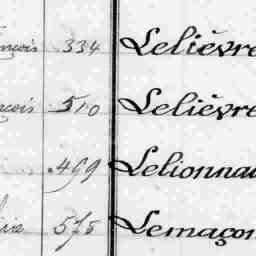 nçois 334 Lelièvre
nçois 510 Lelièvre
499 Lelionna
575 Lemaçon